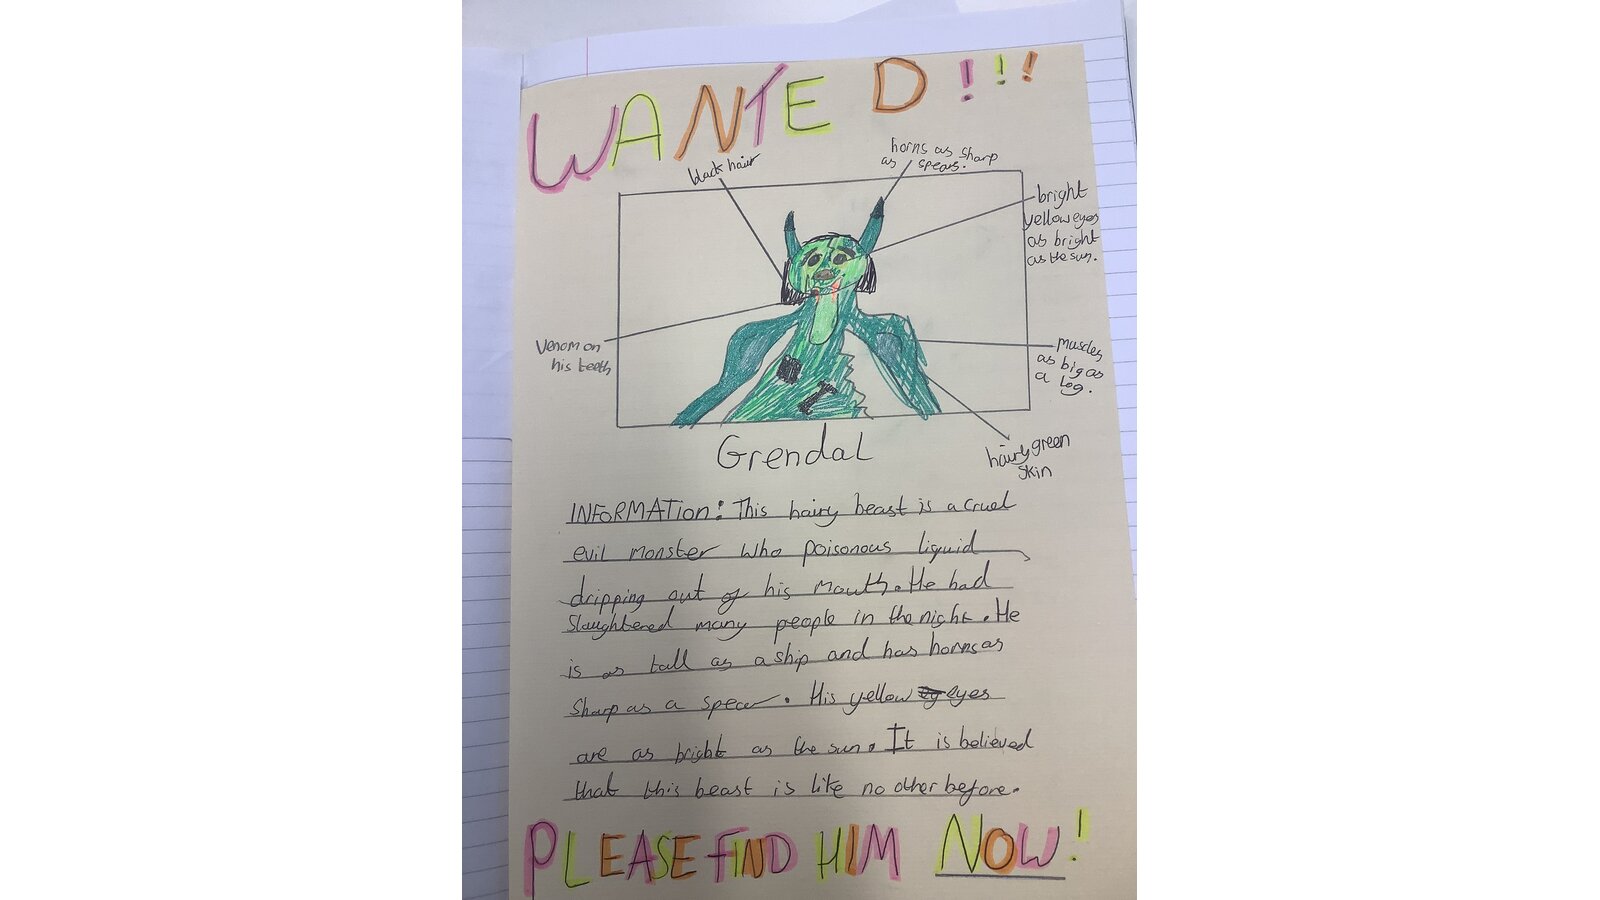 WANTED!!!
black hair
horns as sharp
as spears.
bright
yellow eyes
as bright
as the sun.
Venom on
his teeth
muscles
as big as
a log.
hairy green
skin
Grendal
INFORMATION: This hairy beast is a cruel
evil monster who poisonous liquid
dripping out of his mouth. He had
slaughtered many people in the night. He
is as tall as a ship and has horns as
sharp as a spear. His yellow eyes
are as bright as the sun. It is believed
that this beast is like no other before.
PLEASE FIND HIM NOW!